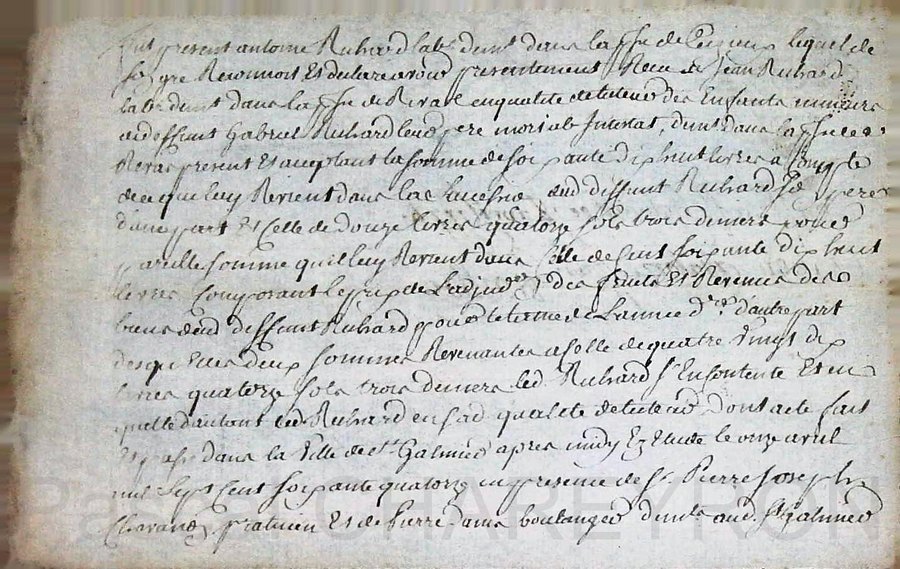 fut present antoine Ruhard labr demt dans la psse de lequel de
son gre Reconnoit Et declare avoir presentement Receu de Jean Ruhard
labr demt dans la psse de Rivas en qualite de tuteur des Enfants mineurs
dedeffunt Gabriel Ruhard leur pere mort ab Intestat, demt dans la psse de
Rivas present Et acceptant la somme de soixante dix huit livres a Compte
de ce qui luy Revient dans la succession dud deffunt Ruhard pere
d'une part Et celle de Douze livres quatorze sols trois deniers pour
pareille somme quil luy Revient dans Celle de Cent soixante dix huit
livres Composant le prix de L'adjudon des fruits Et Revenus des
biens dud deffunt Ruhard pour le terme de L'année dre d'autre part
desquelles deux sommes Revenantes a Celle de quatre Vingt dix
livres quatorze sols trois deniers led Ruhard s'En Contente Et en
quitte d'autant led Ruhard en sad qualite de tuteur, dont acte fait
Et passé dans la Ville de St Galmier apres midy En Etude le onze avril
mil sept Cent soixante quatorze en presence de sr Pierre Joseph
praticien Et de Pierre boulanger demts aud St Galmier
Pascal CHAREYRON